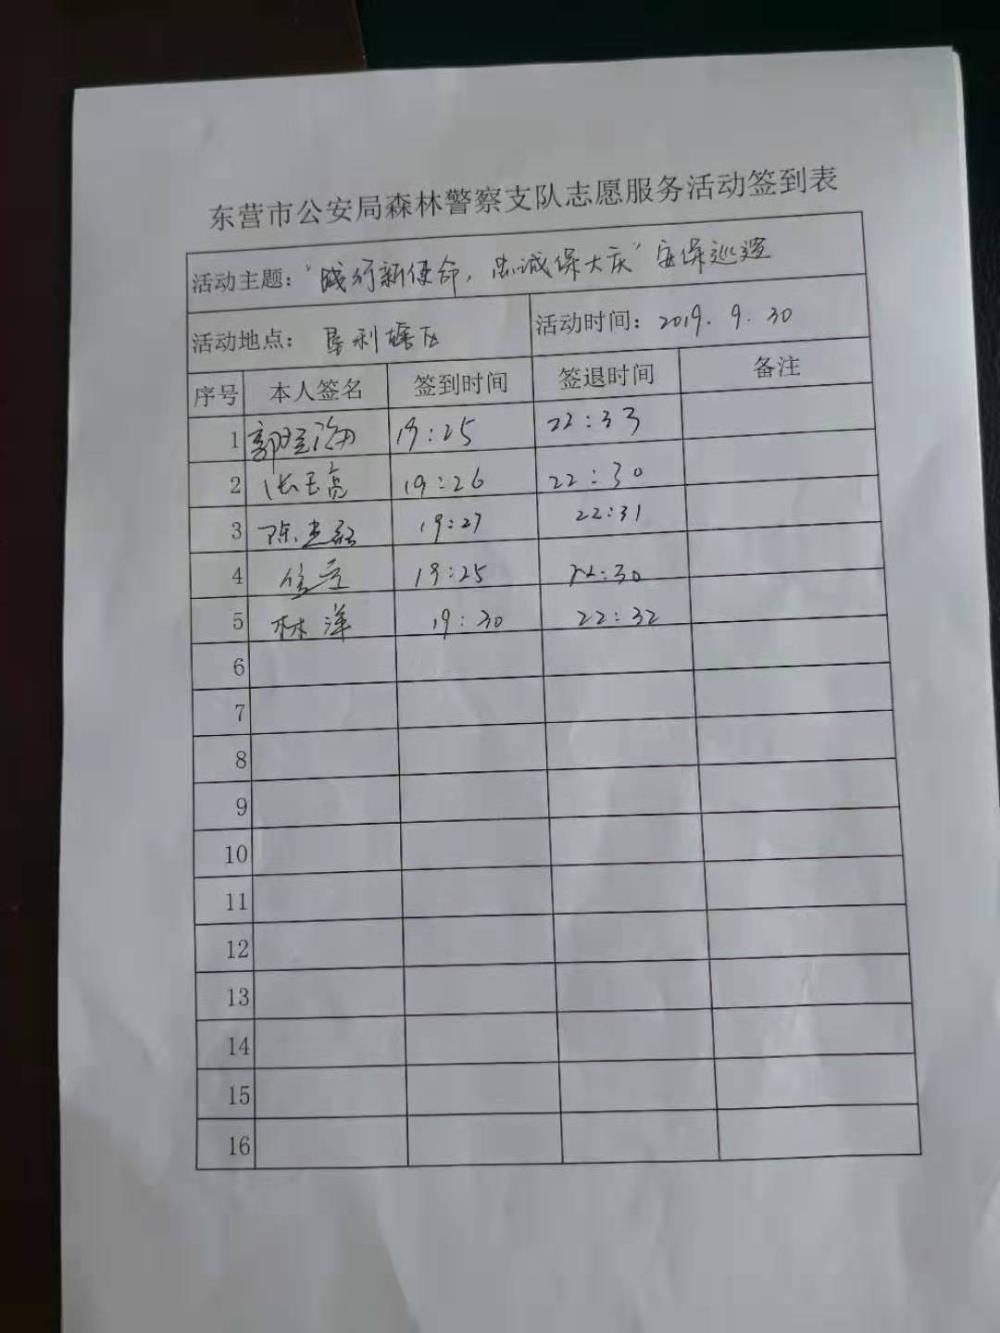 东营市公安局森林警察支队志愿服务活动签到表
活动主题：“践行新使命，忠诚保大庆”安保巡逻
活动地点：垦利辖区 活动时间：2019.9.30
序号 本人签名 签到时间 签退时间 备注
1 19:25 22:33
2 张玉亮 19:26 22:30
3 陈 19:27 22:31
4 19:25 22:30
5 林洋 19:30 22:32
6
7
8
9
10
11
12
13
14
15
16